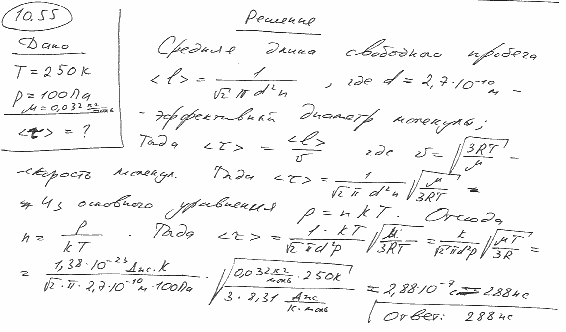 10.55
Дано
T = 250 К
p = 100 Па
μ = 0,032 кг/моль
<τ> = ?
Решение
Средняя длина свободного пробега
<l> = 1/(√2 π d² n) , где d = 2,7·10⁻¹⁰ м –
- эффективный диаметр молекулы;
Тогда <τ> = <l>/v где v = √(3RT/μ) –
-скорость молекул. Тогда <τ> = 1/(√2 π d² n) √(μ/3RT) =
* Из основного уравнения p = nkT. Отсюда
n = p/(kT) . Тогда <τ> = 1·kT/(√2 π d² p) √(μ/3RT) = k/(√2 π d² p) √(μT/3R) =
= (1,38·10⁻²³ Дж·К)/(√2·π·2,7·10⁻¹⁰ м·100Па) · √((0,032 кг/моль · 250К)/(3·8,31 Дж/(К·моль))) = 2,88·10⁻⁷ с = 288 нс
Ответ: 288 нс